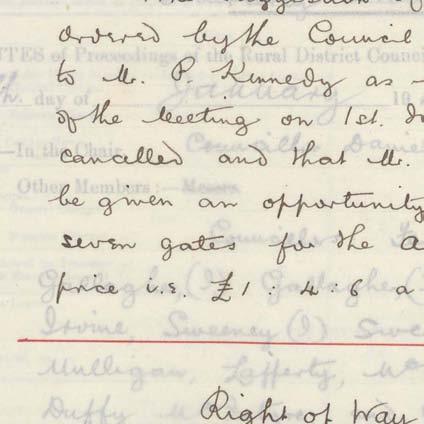 ordered by the Council
UTES of Proceedings of the Rural District Counci
to Mr. P. Kennedy as
day of January 19
of the Meeting on 1st.
—In the Chair, Councillor Daniel
cancelled and that Mr.
Other Members:—Messrs.
be given an opportunity
Councillors
seven gates for the a
Gallagher (
price i.e. £1 : 4 : 6 a
Irvine, Sweeney (J) Swee
Mulligan, Lafferty, Mc
Right of Way
Duffy